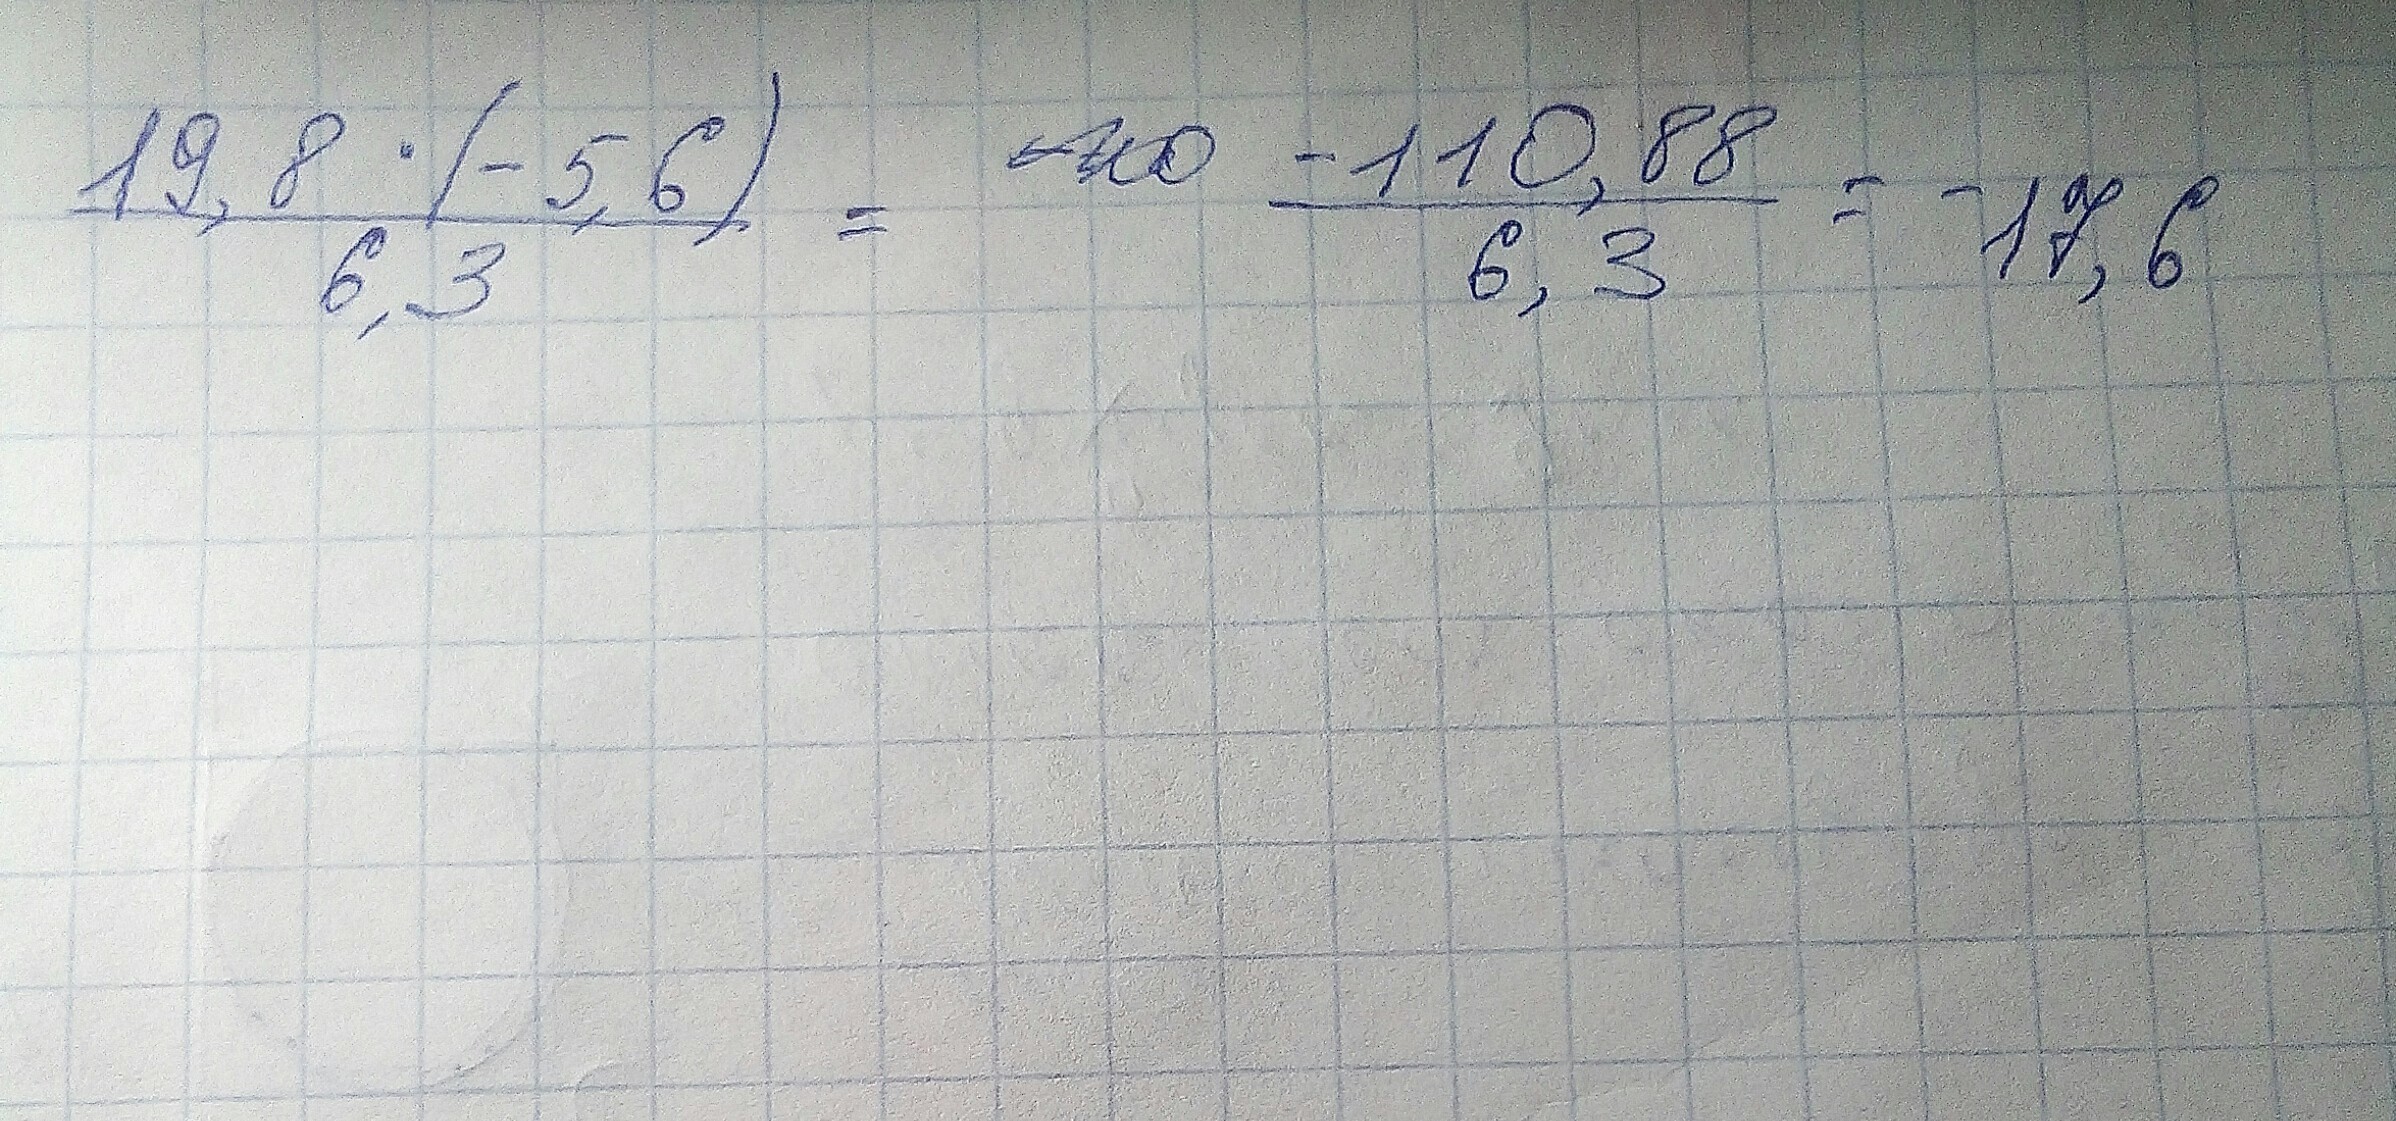 19,8 · (-5,6) / 6,3 = -110,88 / 6,3 = -17,6